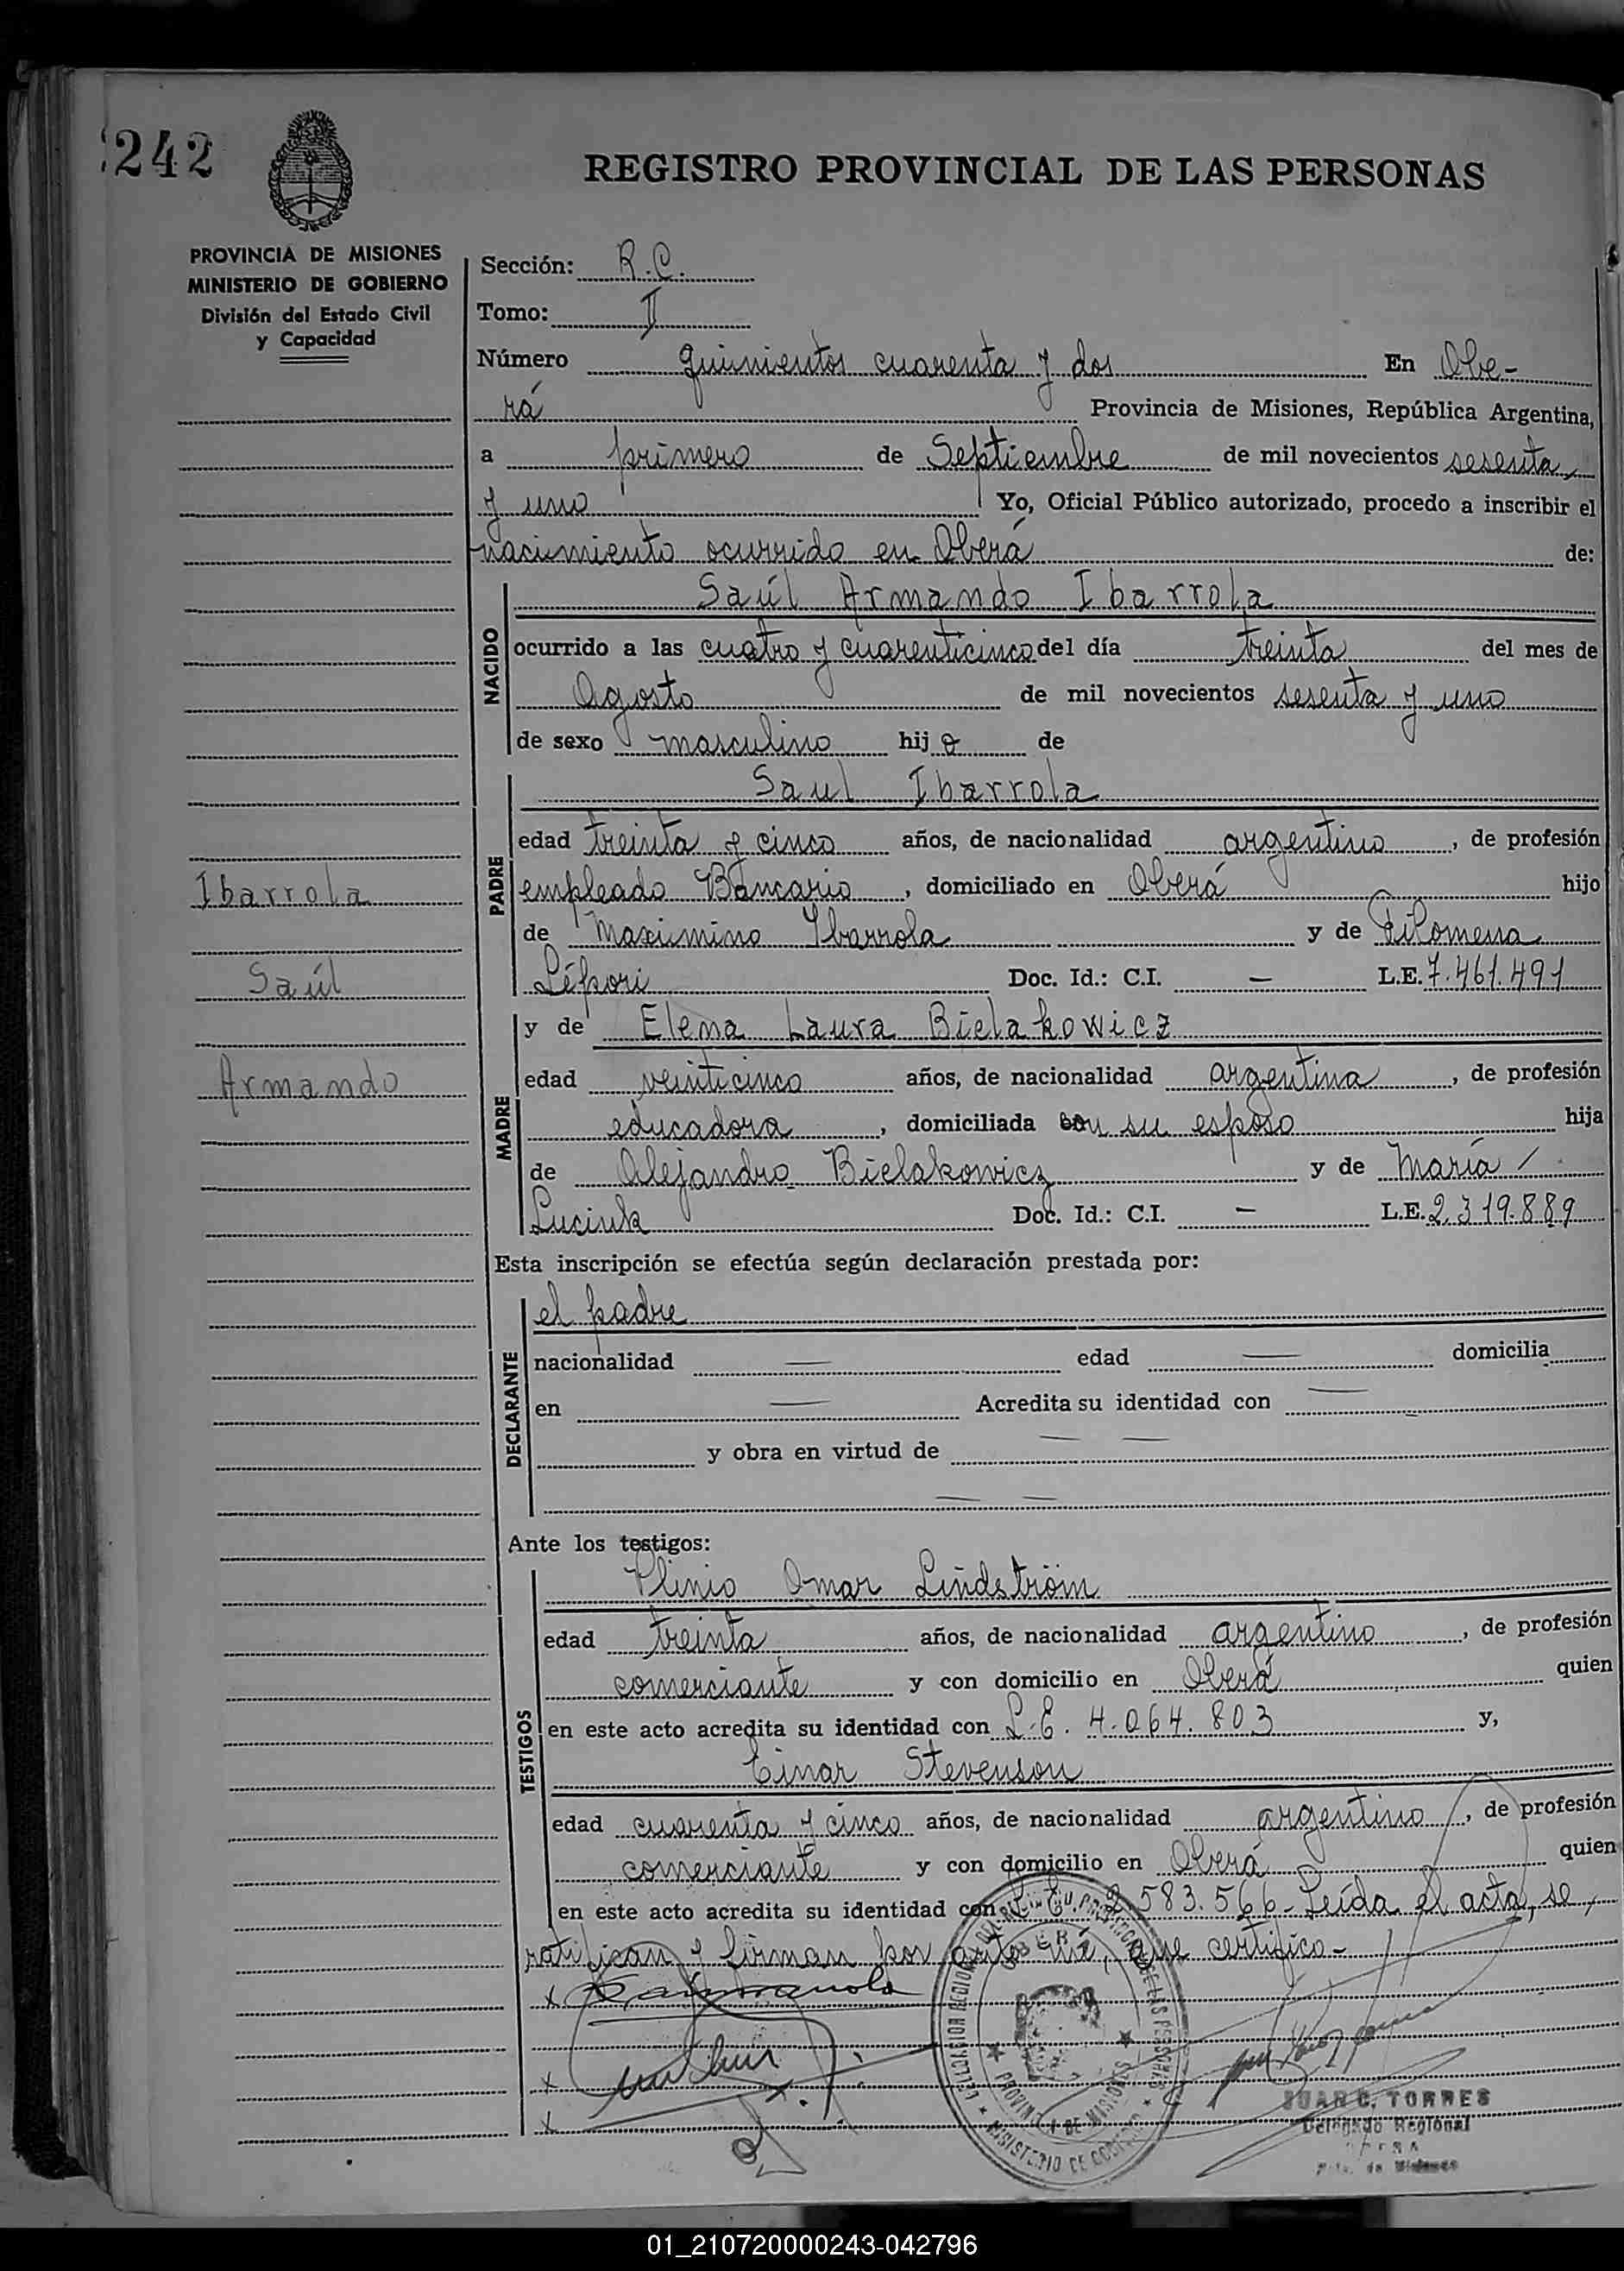 242
REGISTRO PROVINCIAL DE LAS PERSONAS
PROVINCIA DE MISIONES
MINISTERIO DE GOBIERNO
División del Estado Civil
y Capacidad
Sección: R.C.
Tomo: II
Número quinientos cuarenta y dos En Obe-
rá Provincia de Misiones, República Argentina,
a primero de Septiembre de mil novecientos sesenta
y uno Yo, Oficial Público autorizado, procedo a inscribir el
nacimiento ocurrido en Oberá de:
NACIDO
Saúl Armando Ibarrola
ocurrido a las cuatro y cuarenticinco del día treinta del mes de
Agosto de mil novecientos sesenta y uno
de sexo masculino hijo de
PADRE
Saul Ibarrola
edad treinta y cinco años, de nacionalidad argentino, de profesión
empleado Bancario, domiciliado en Oberá hijo
de Maximino Ibarrola y de Filomena
Lépori Doc. Id.: C.I. — L.E. 7.461.491
Ibarrola
Saúl
Armando
MADRE
y de Elena Laura Bielakowicz
edad veinticinco años, de nacionalidad argentina, de profesión
educadora, domiciliada con su esposo hija
de Alejandro Bielakowicz y de María /
Luciuk Doc. Id.: C.I. — L.E. 2.319.889
Esta inscripción se efectúa según declaración prestada por:
DECLARANTE
el padre
nacionalidad — edad — domicilia
en — Acredita su identidad con —
y obra en virtud de — —
— —
Ante los testigos:
TESTIGOS
Plinio Omar Lindström
edad treinta años, de nacionalidad argentino, de profesión
comerciante y con domicilio en Oberá quien
en este acto acredita su identidad con L.E. 4.064.803 y,
Einar Stevenson
edad cuarenta y cinco años, de nacionalidad argentino, de profesión
comerciante y con domicilio en Oberá quien
en este acto acredita su identidad con L.E. 583.566- Leída el acta, se
ratifican y firman por ante mí, que certifico-
OBERA
PROVINCIA DE MISIONES
MINISTERIO DE GOBIERNO
JUAN C. TORRES
Delegado Regional
01_210720000243-042796